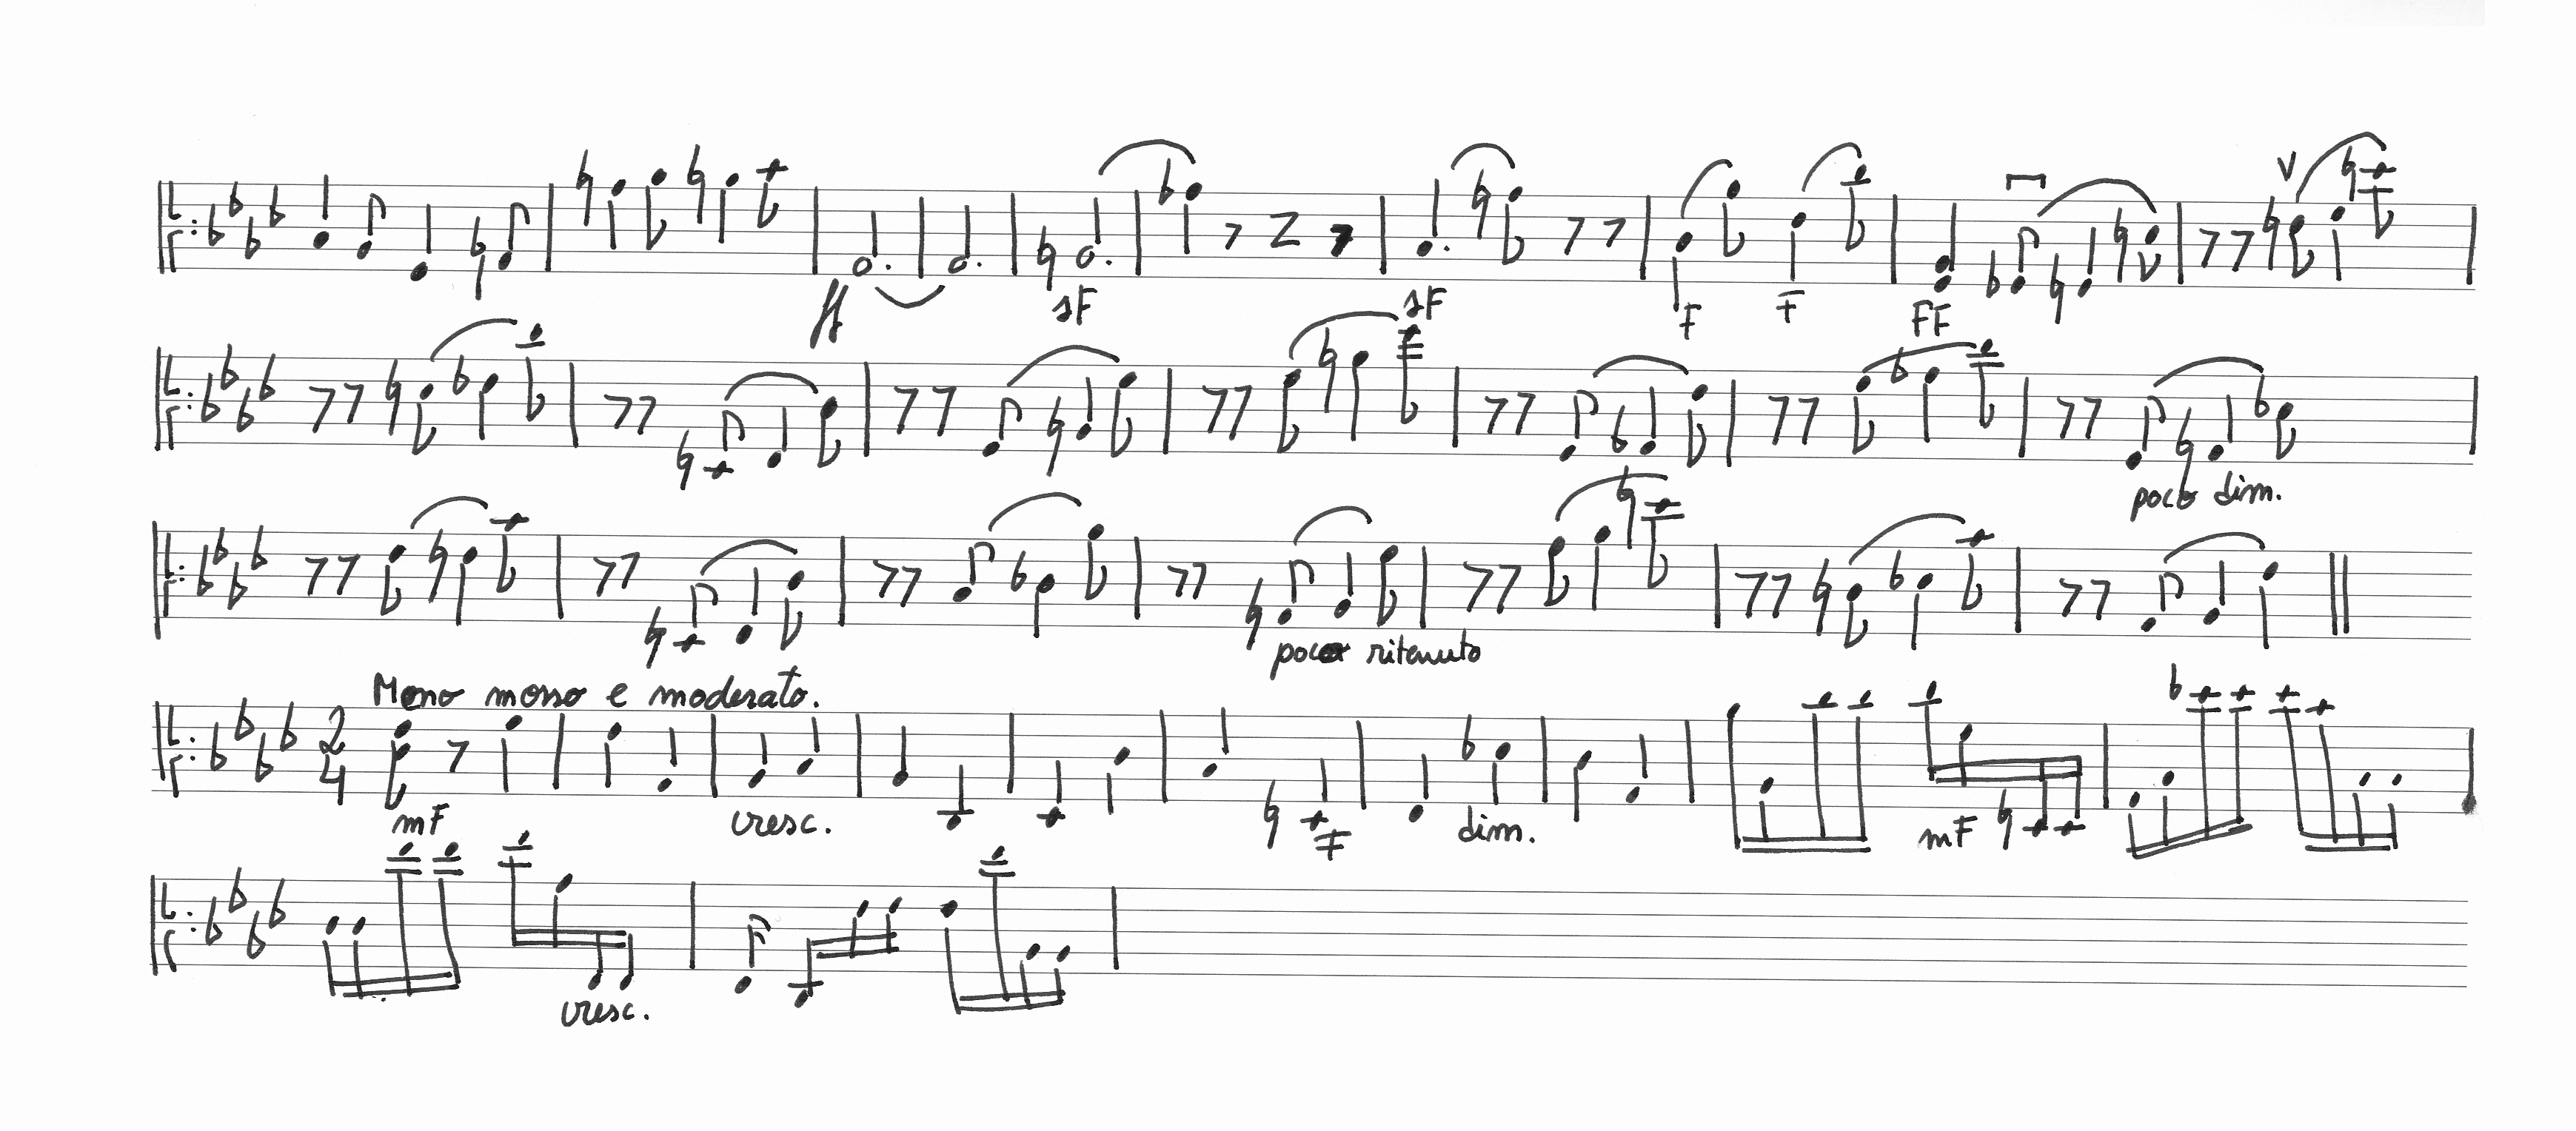 ff sF sF F F FF V
poco dim.
poco ritenuto
Meno mosso e moderato.
2
4
mF cresc. F dim. mF
cresc.